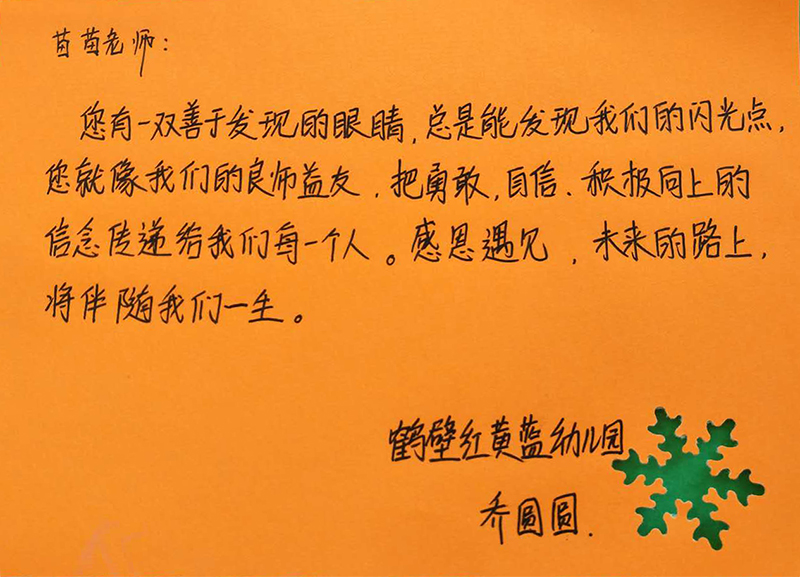 苗苗老师：
您有一双善于发现的眼睛，总是能发现我们的闪光点，
您就像我们的良师益友，把勇敢，自信、积极向上的
信念传递给我们每一个人。感恩遇见，未来的路上，
将伴随我们一生。
鹤壁红黄蓝幼儿园
乔圆圆.